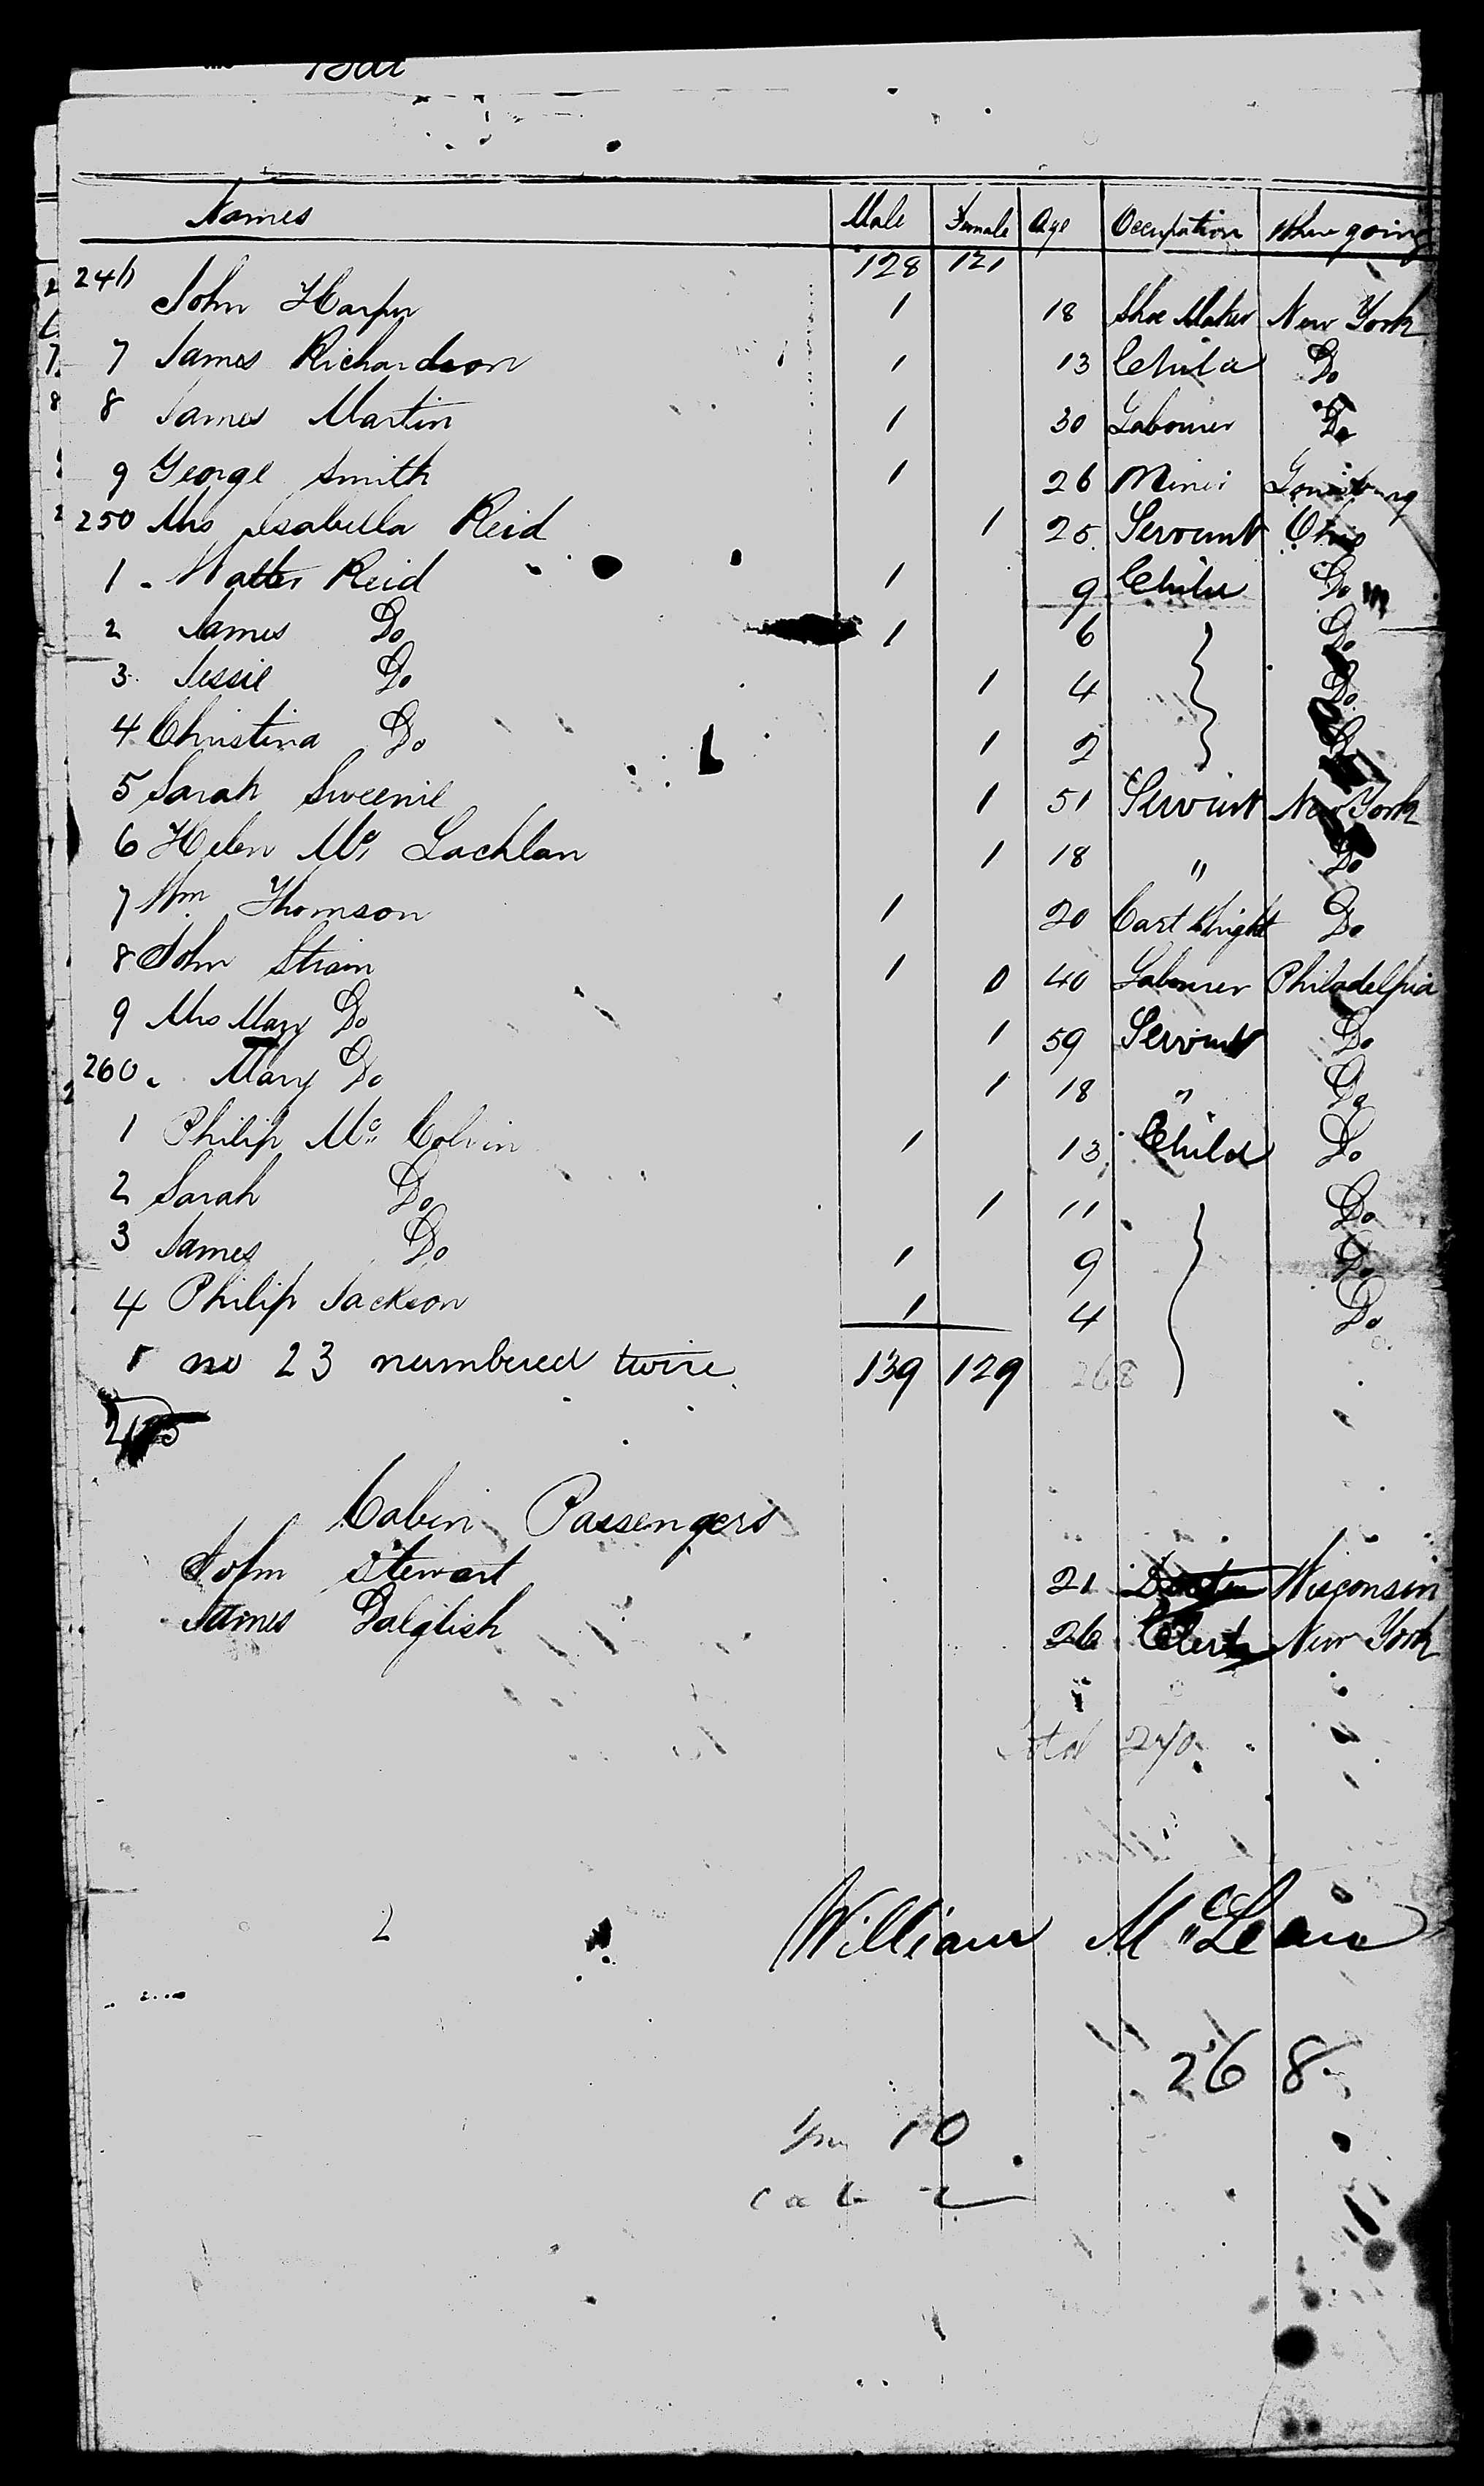 Names Male Female Age Occupation Where going
246 128 121
John Harper 1 18 Shoe Maker New York
7 James Richardson 1 13 Child Do
8 James Martin 1 30 Labourer Do
9 George Smith 1 26 Miner
250 Mrs Isabella Reid 1 25 Servant Ohio
1 Reid 1 9 Child Do
2 James Do 1 6 Do
3 Jessie Do 1 4 Do
4 Christina Do 1 2 Do
5 Sarah Sweenie 1 51 Servant New York
6 Helen Mc Lachlan 1 18 " Do
7 Wm Thomson 1 20 Cart Wright Do
8 John Strain 1 0 40 Labourer Philadelpia
9 Mrs Mary Do 1 59 Servant Do
260 Mary Do 1 18 " Do
1 Philip Mc Colvin 1 13 Child Do
2 Sarah Do 1 11 Do
3 James Do 1 9 Do
4 Philip Jackson 1 4 Do
5 no 23 numbered twice 139 129 268
Cabin Passengers
John Stewart 21 Wisconsin
James Dalglish 26 Clerk New York
Total 270
2 William McLean
268
10